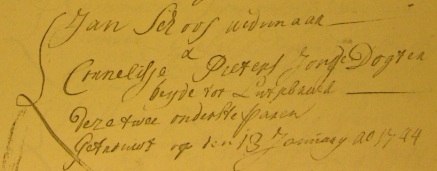 Jan Schoof wedunaar
&
Cornelisse Pieters Jonge Dogter
beyde tot
deze twee onderste paaren
Getrouwt op den 13 January Ao 1744